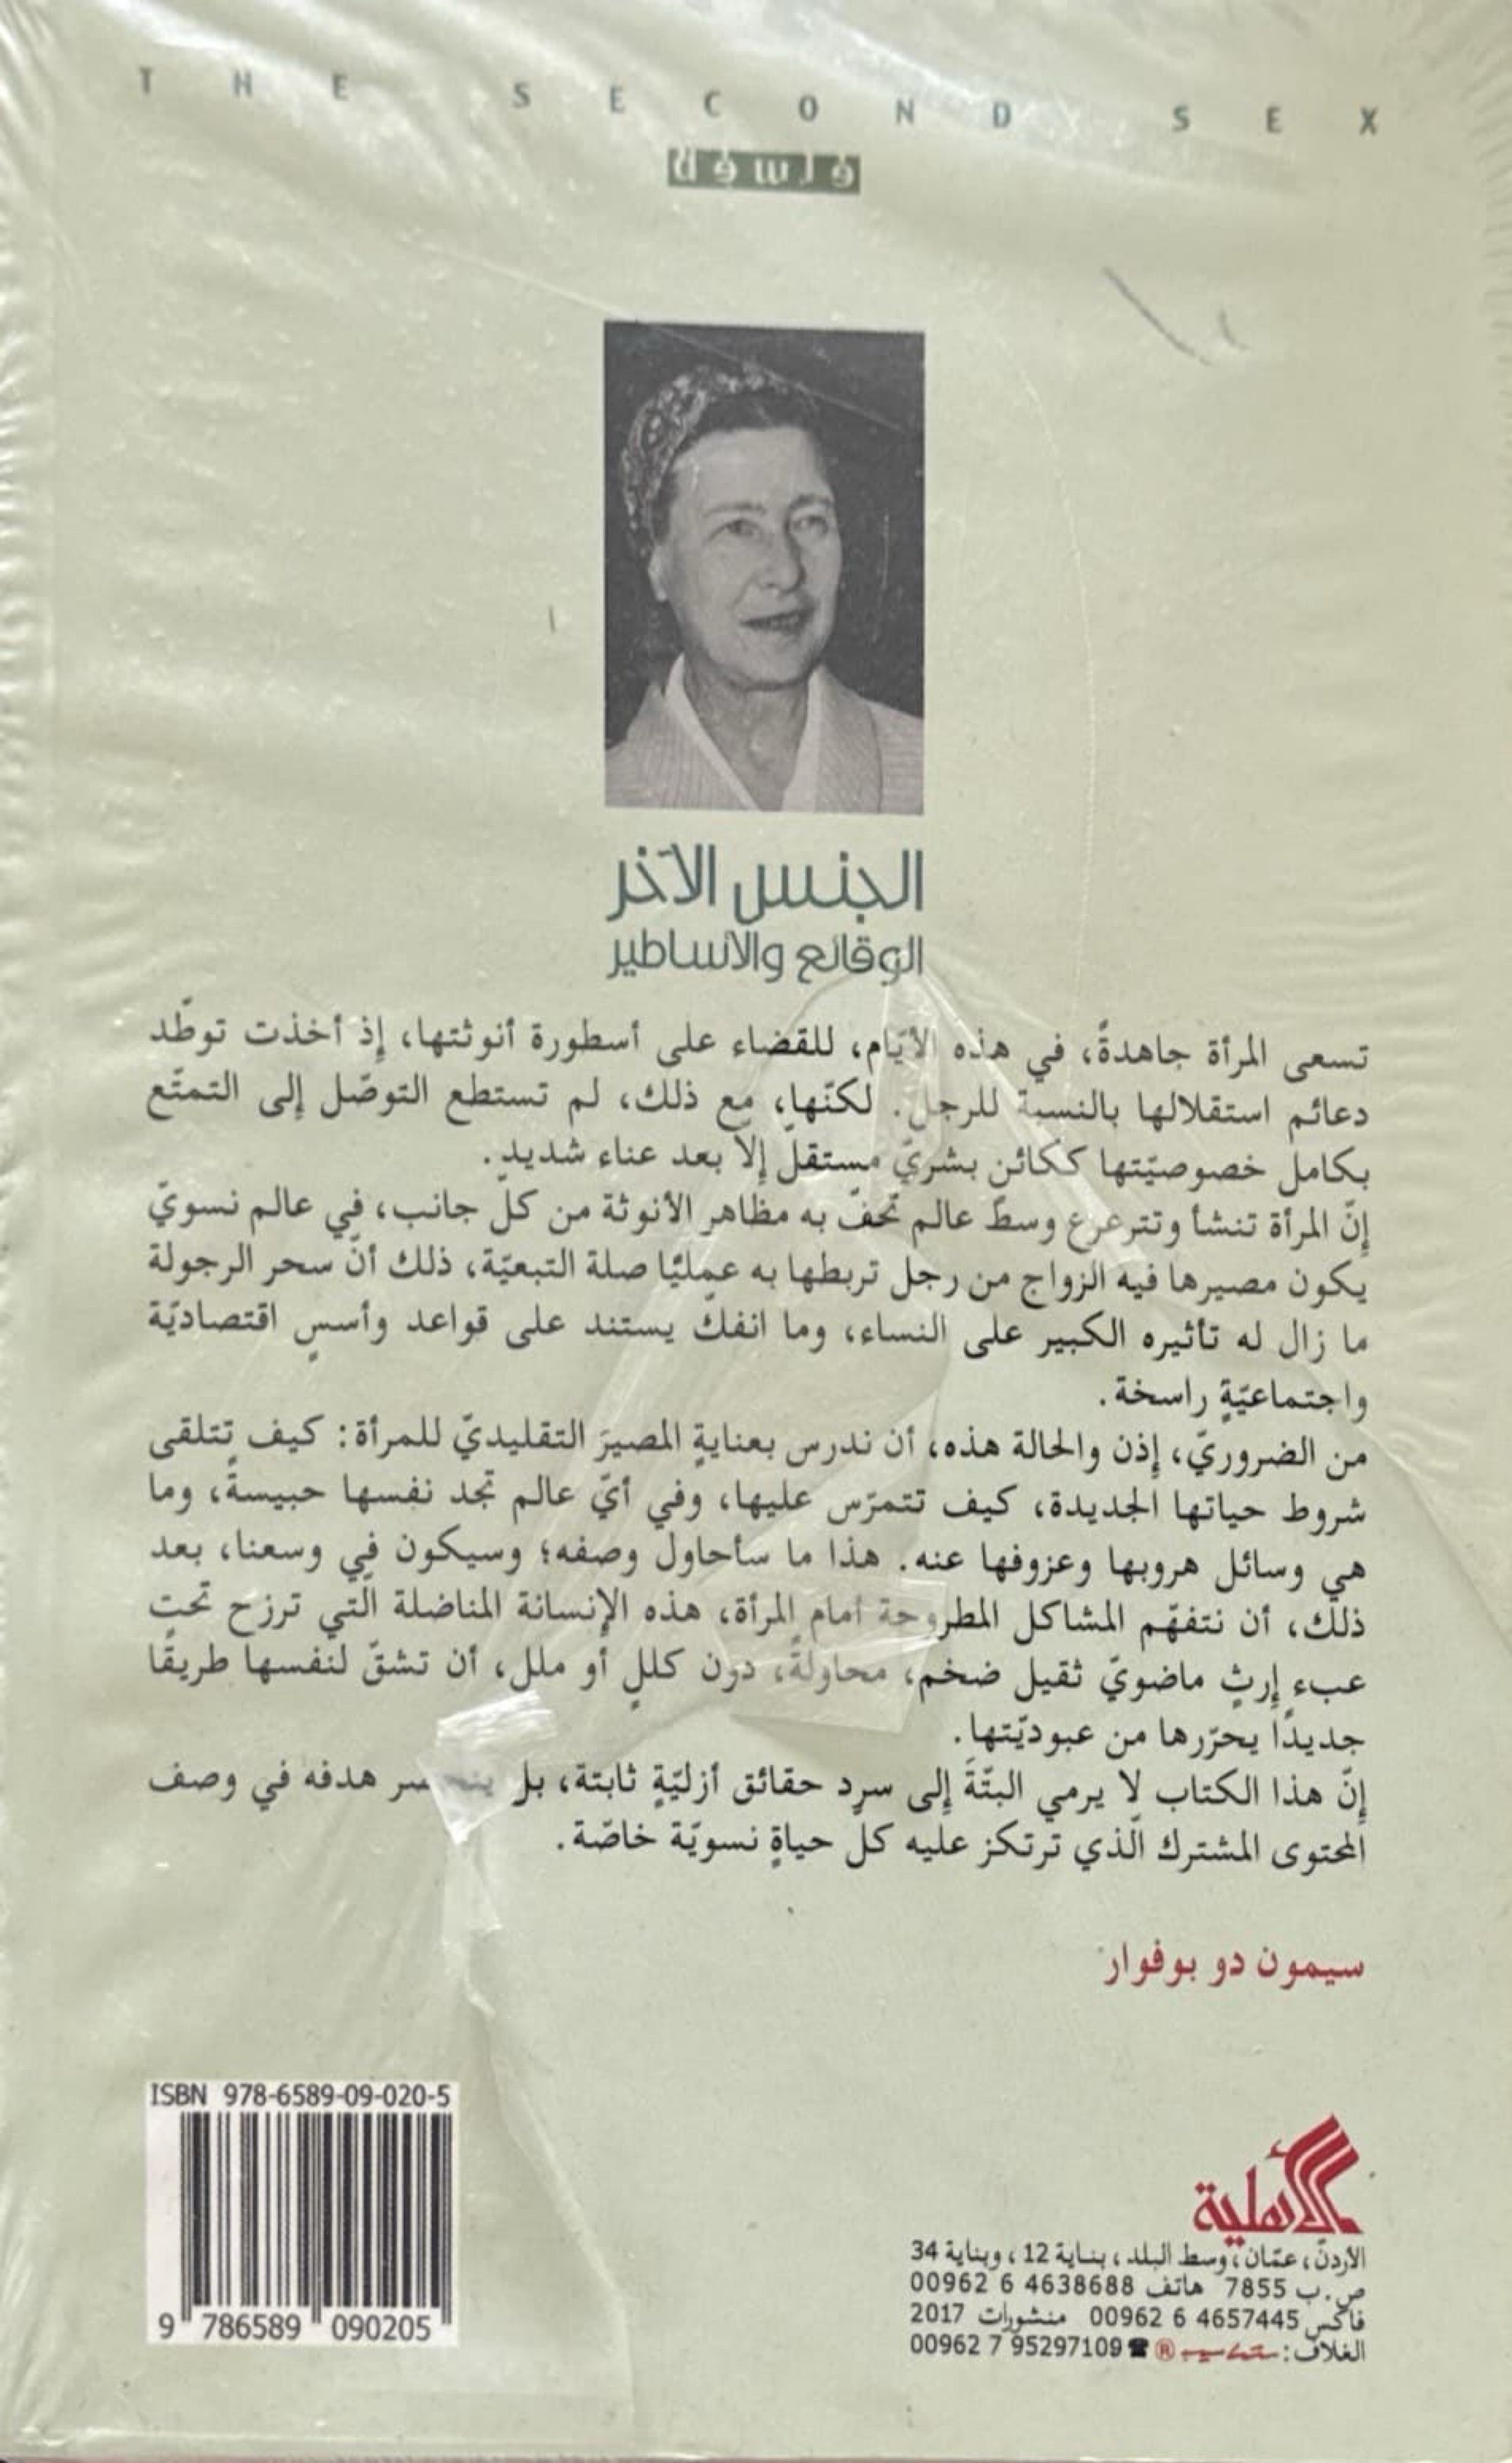 THE SECOND SEX
فلسفة
الجنس الآخر
الوقائع والأساطير
تسعى المرأة جاهدةً، في هذه الأيّام، للقضاء على أسطورة أنوثتها، إذ أخذت توطّد
دعائم استقلالها بالنسبة للرجل. لكنّها، مع ذلك، لم تستطع التوصّل إلى التمتّع
بكامل خصوصيّتها ككائن بشريّ مستقلّ إلاّ بعد عناء شديدٍ.
إنّ المرأة تنشأ وتترعرع وسط عالم تحفّ به مظاهر الأنوثة من كلّ جانب، في عالم نسويّ
يكون مصيرها فيه الزواج من رجل تربطها به عمليًا صلة التبعيّة، ذلك أنّ سحر الرجولة
ما زال له تأثيره الكبير على النساء، وما انفكّ يستند على قواعد وأسسٍ اقتصاديّة
واجتماعيّةٍ راسخة.
من الضروريّ، إذن والحالة هذه، أن ندرس بعنايةٍ المصيرَ التقليديّ للمرأة: كيف تتلقى
شروط حياتها الجديدة، كيف تتمرّس عليها، وفي أيّ عالم تجد نفسها حبيسةً، وما
هي وسائل هروبها وعزوفها عنه. هذا ما سأحاول وصفه؛ وسيكون في وسعنا، بعد
ذلك، أن نتفهّم المشاكل المطروحة أمام المرأة، هذه الإنسانة المناضلة الّتي ترزح تحت
عبء إرثٍ ماضويّ ثقيل ضخم، محاولةً، دون كللٍ أو ملل، أن تشقّ لنفسها طريقًا
جديدًا يحرّرها من عبوديّتها.
إنّ هذا الكتاب لا يرمي البتّةَ إلى سردِ حقائق أزليّةٍ ثابتة، بل هدفه في وصف
المحتوى المشترك الّذي ترتكز عليه كلّ حياةٍ نسويّة خاصّة.
سيمون دو بوفوار
ISBN 978-6589-09-020-5
9 786589 090205
الأهلية
الأردنّ، عمّان، وسط البلد، بناية 12، وبناية 34
ص.ب 7855 هاتف 00962 6 4638688
فاكس 00962 6 4657445 منشورات 2017
الغلاف: ® ☎ 00962 7 95297109